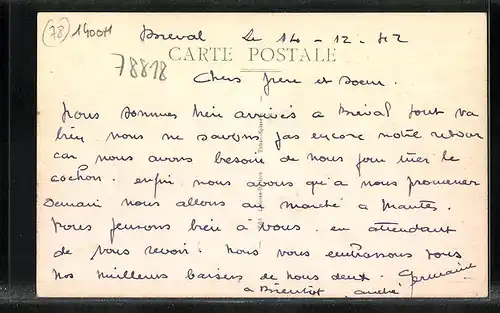 (78) 1400H Bréval Le 14 - 12 - 42
CARTE POSTALE
78818
Chers frere et soeur.
Nous sommes bien arrivés a Bréval tout va
bien nous ne savons pas encore notre retour
car nous avons besoin de nous pour tuer le
cochon. enfin nous avons qu'a nous promener
Demain nous allons au marché a Mantes.
Nous pensons bien a vous. en attendant
de vous revoir. Nous vous embrassons tous
Nos meilleurs baisers de nous deux. Germaine
a Bientôt andré